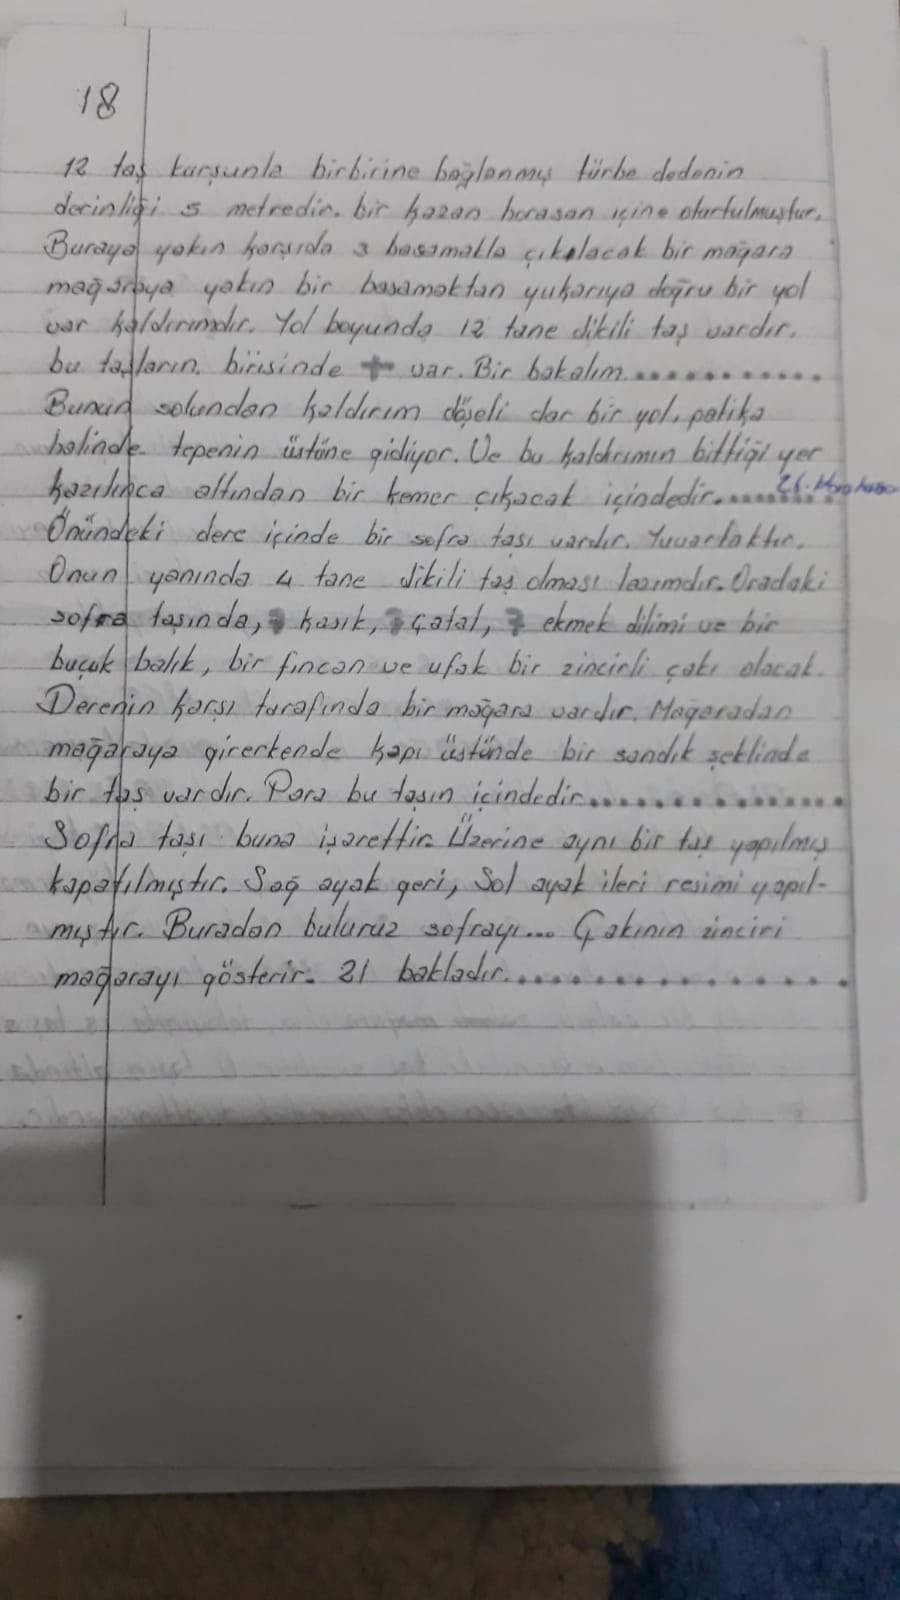 18
12 taş kurşunla birbirine bağlanmış türbe dedenin
derinliği 5 metredir. bir kazan horasan içine oturtulmuştur.
Buraya yakın karşıda 3 basamakla çıkılacak bir mağara
mağaraya yakın bir basamaktan yukarıya doğru bir yol
var kaldırımdır. Yol boyunda 12 tane dikili taş vardır.
bu taşların. birisinde + var. Bir bakalım............
Bunun solundan kaldırım döşeli dar bir yol. patika
halinde tepenin üstüne gidiyor. Ve bu kaldırımın bittiği yer
kazılınca altından bir kemer çıkacak içindedir........
Önündeki dere içinde bir sofra taşı vardır. Yuvarlaktır.
Onun yanında 4 tane dikili taş olması lazımdır. Oradaki
sofra taşında, 7 kaşık, 7 çatal, 7 ekmek dilimi ve bir
buçuk balık, bir fincan ve ufak bir zincirli çakı olacak.
Derenin karşı tarafında bir mağara vardır. Mağaradan
mağaraya girerkende kapı üstünde bir sandık şeklinde
bir taş vardır. Para bu taşın içindedir..............
Sofra taşı buna işarettir. Üzerine aynı bir taş yapılmış
kapatılmıştır. Sağ ayak geri, Sol ayak ileri resimi yapıl-
mıştır. Buradan buluruz sofrayı... Çakının zinciri
mağarayı gösterir. 21 bakladır..................